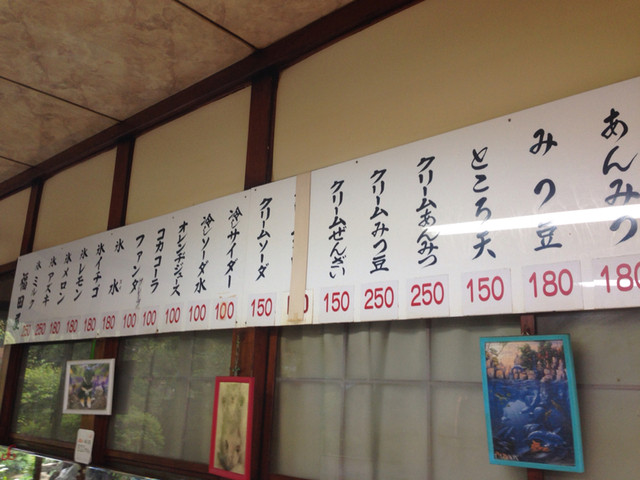 あんみつ 180
みつ豆 180
ところ天 150
クリームあんみつ 250
クリームみつ豆 250
クリームぜんざい 150
クリームソーダ 150
冷しサイダー 100
冷しソーダ水 100
オレンヂジュース 100
コカコーラ 100
ファンタ 100
氷水 100
氷イチゴ 180
氷レモン 180
氷メロン 180
氷アズキ 250
氷ミルク
福田屋